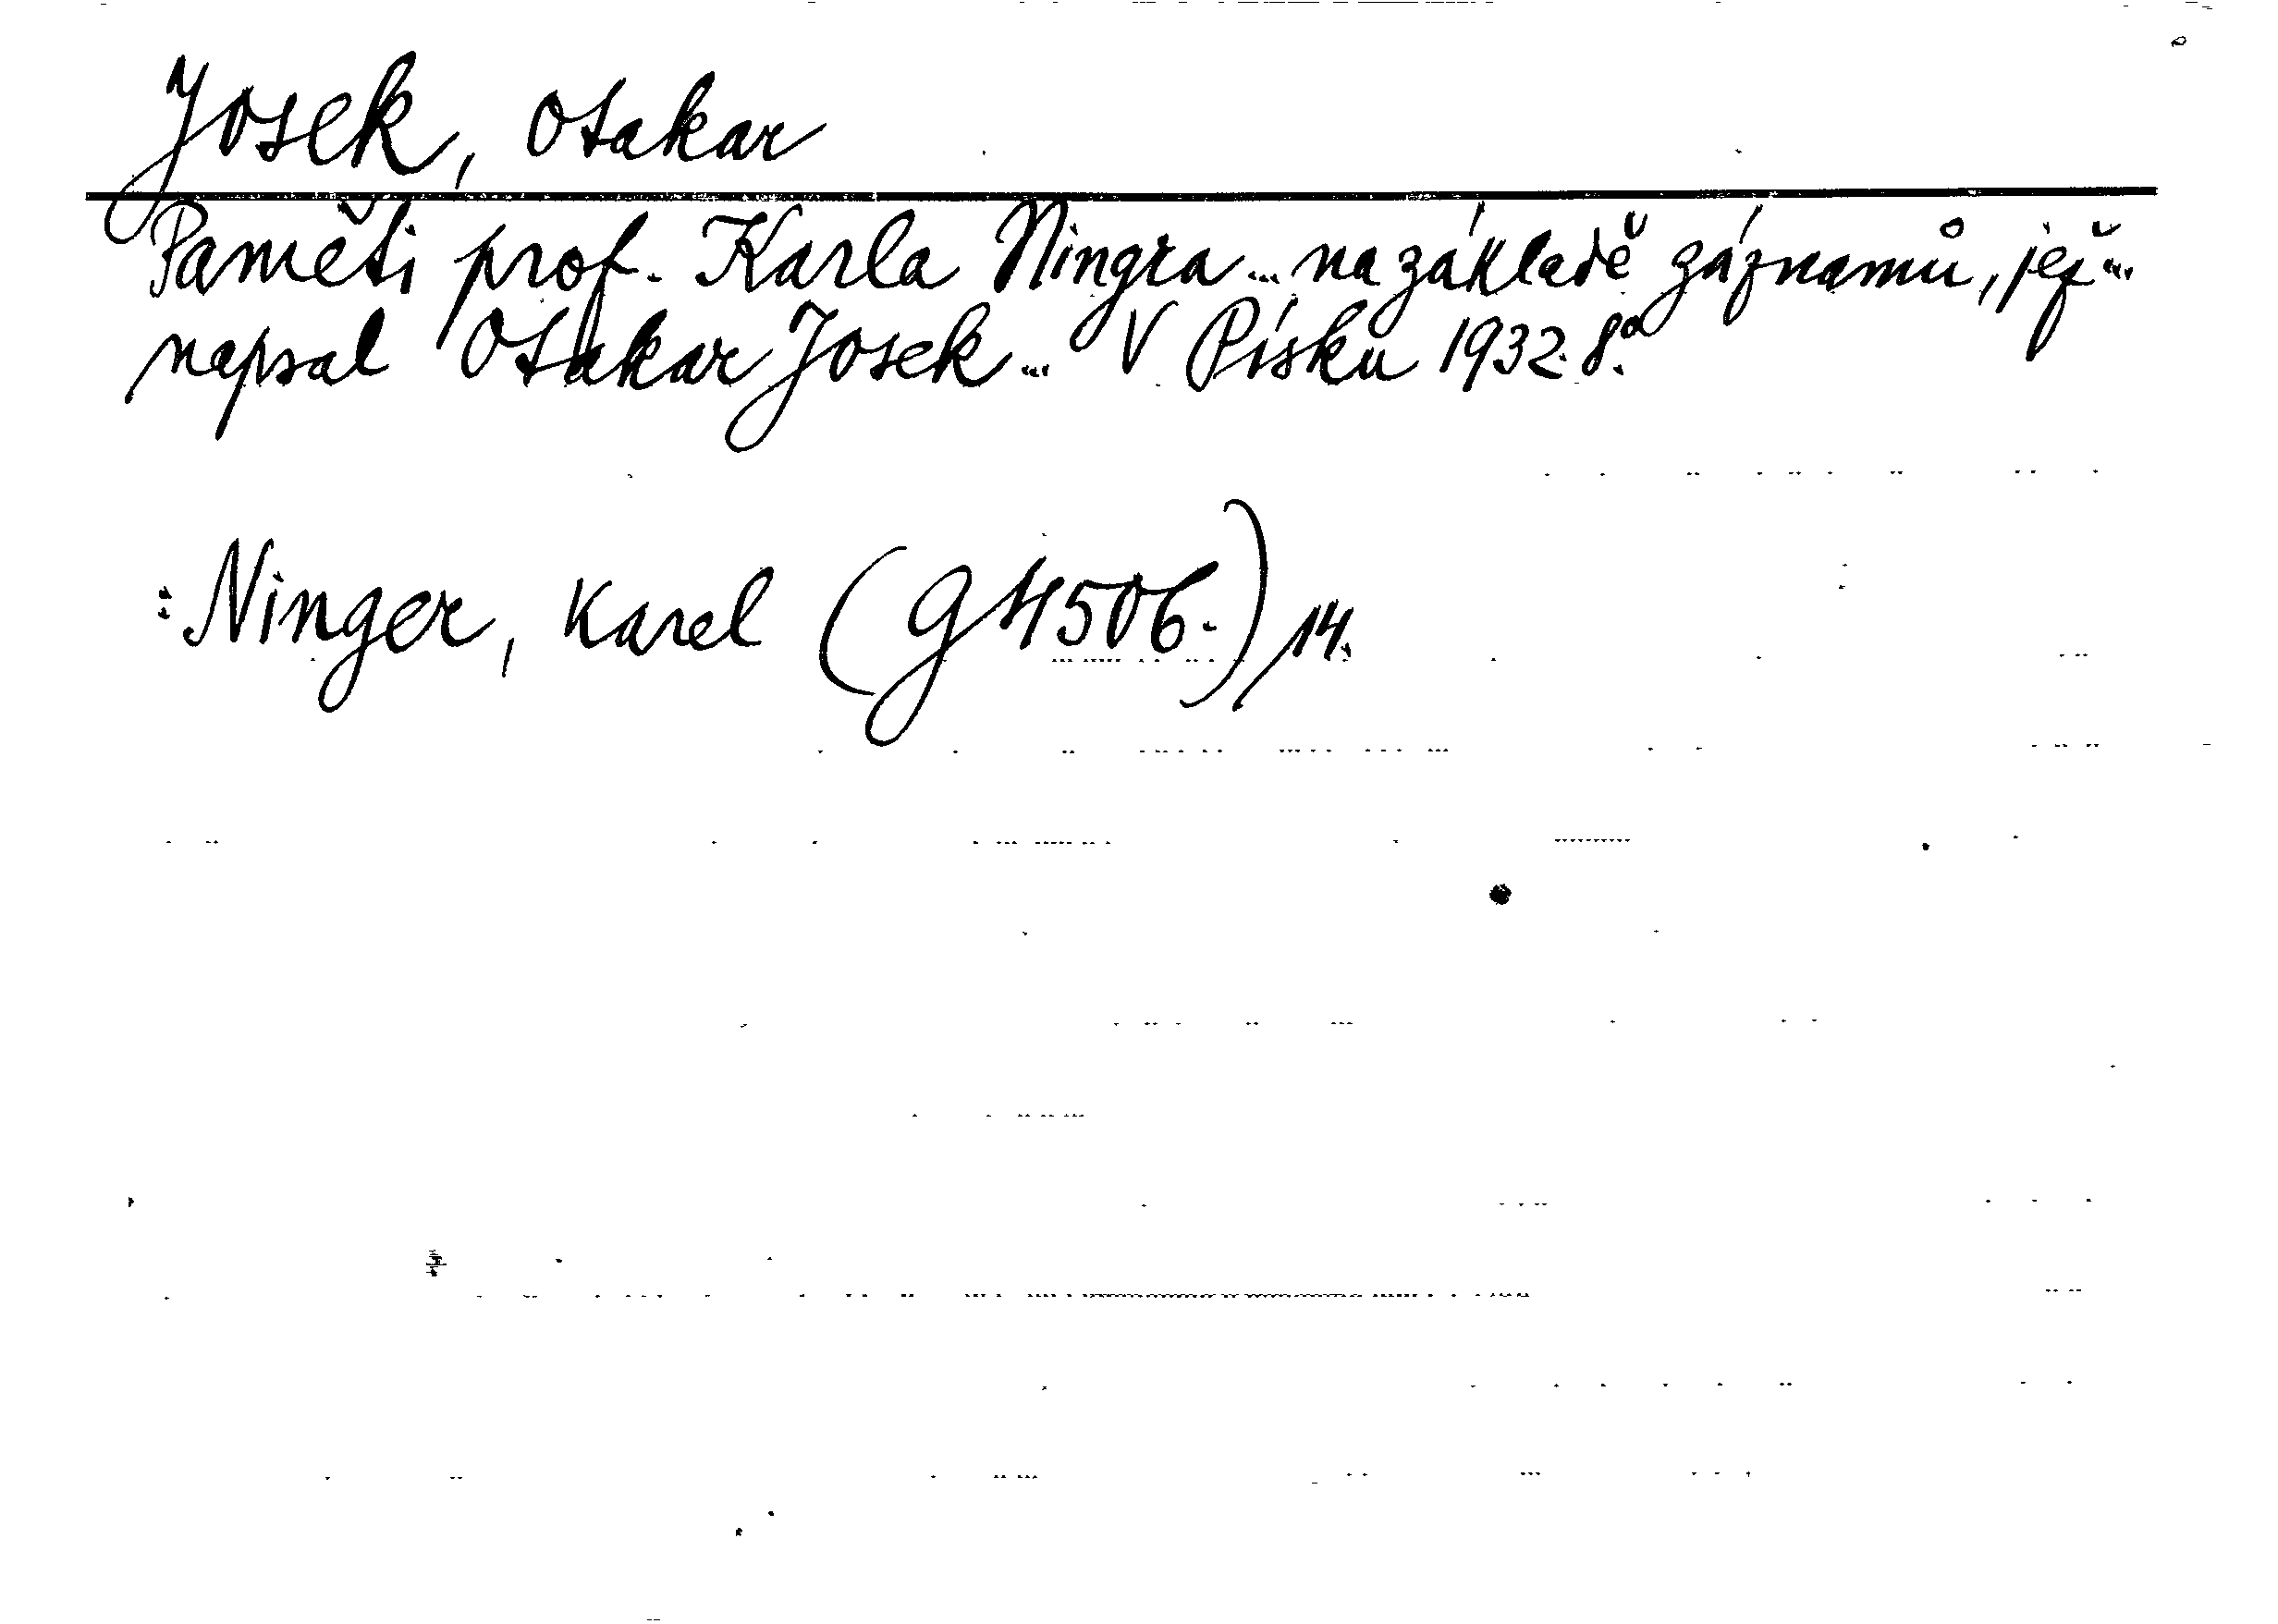 Josek, Otakar
Paměti prof. Karla Ningra... na základě záznamů, jež...
napsal Otakar Josek... V Písku 1932. 8.°
: Ninger, Karel (G 4506.)/14.